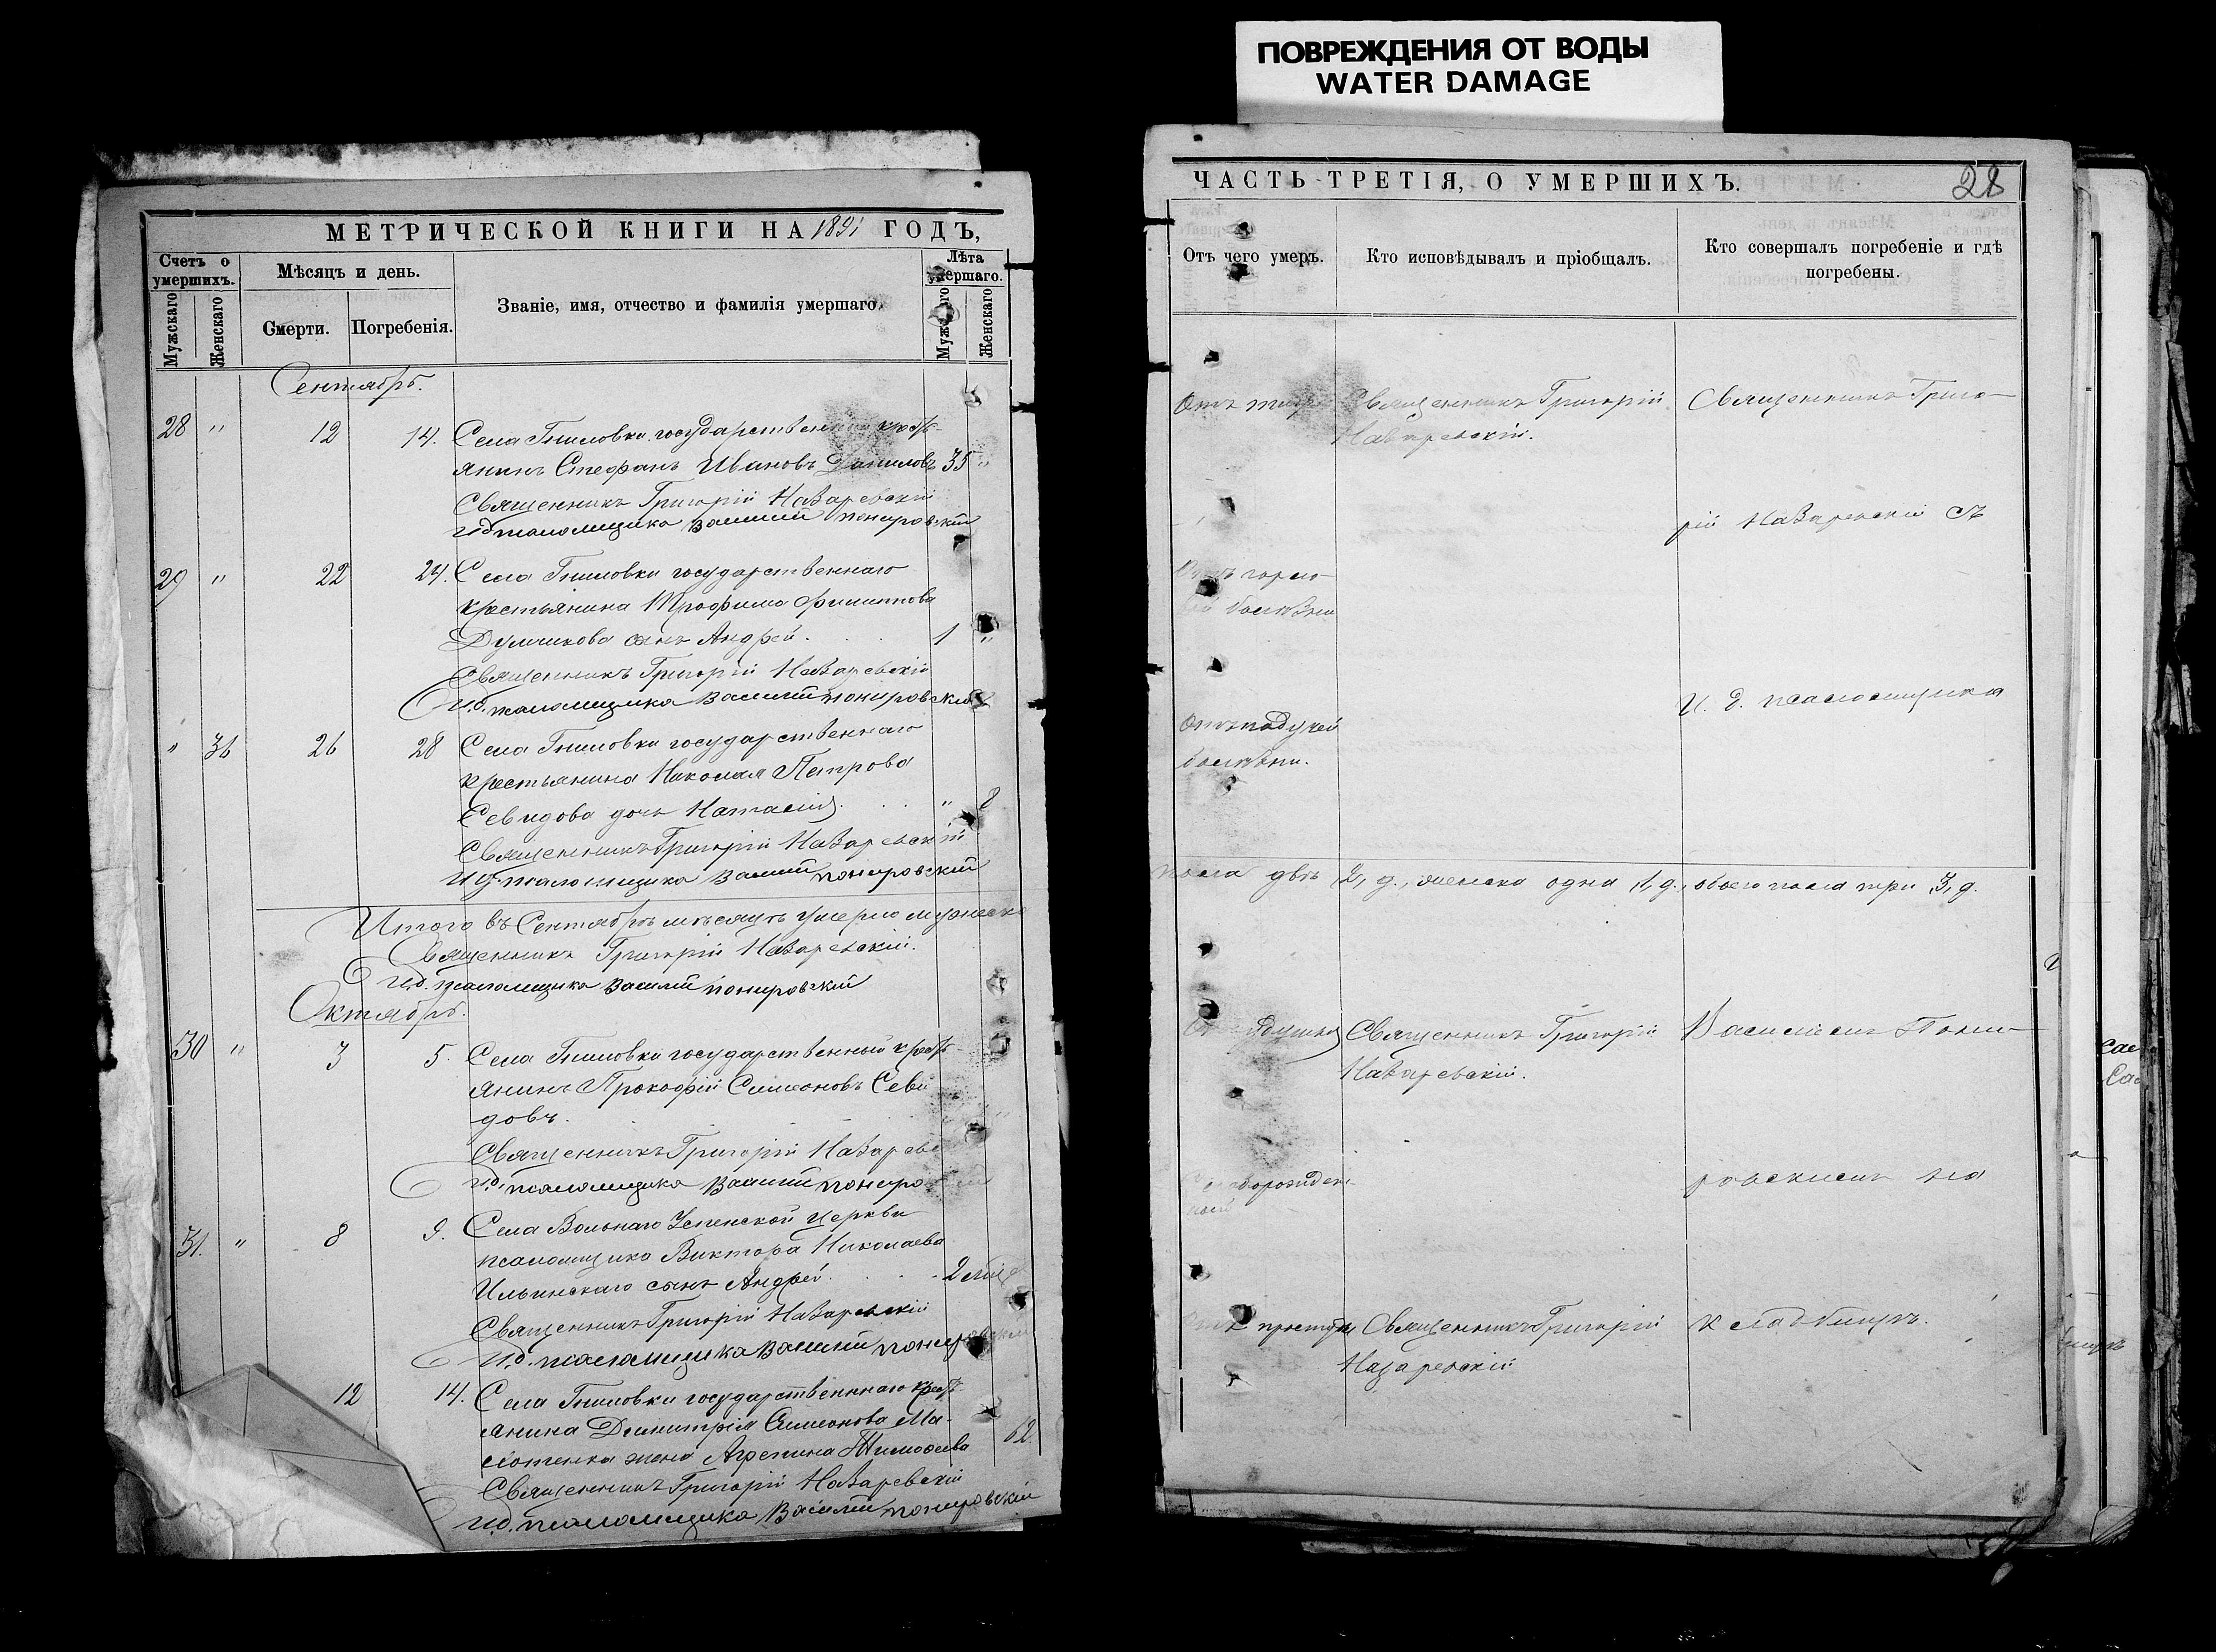 ПОВРЕЖДЕНИЯ ОТ ВОДЫ
WATER DAMAGE
МЕТРИЧЕСКОЙ КНИГИ НА 1891 ГОДЪ,
Счетъ о умершихъ.
Мужскаго
Женскаго
Мѣсяцъ и день.
Смерти.
Погребенія.
Званіе, имя, отчество и фамилія умершаго.
Лѣта умершаго.
Мужскаго
Женскаго
Сентябрь.
28 " 12 14. Села Гниловки государственный кресть-
янинъ Стефанъ Ивановъ Даниловъ 35 "
Священникъ Григорій Назаревскій
И.д. псаломщика Василій Понировскій
29 " 22 24. Села Гниловки государственнаго
крестьянина Трофима Филиппова
сынъ Андрей. 1 "
Священникъ Григорій Назаревскій
И.д. псаломщика Василій Понировскій
" 36 26 28 Села Гниловки государственнаго
крестьянина Николая Петрова
Севидова дочь "
Священникъ Григорій Назаревскій
И.д. псаломщика Василій Понировскій
Итого въ Сентябрѣ мѣсяцѣ умерло мужеска
Священникъ Григорій Назаревскій.
И.д. псаломщика Василій Понировскій
Октябрь.
30 " 3 5. Села Гниловки государственный кресть-
янинъ Прокофій Симеоновъ Севи
довъ.
Священникъ Григорій
И.д. псаломщика Василій
31. " 8 9. Села Вольнаго Успенской церкви
псаломщика Виктора Николаева
Ильинскаго сынъ Андрей. 2
Священникъ Григорій Назаревскій
И.д. псаломщика Василій
12 14. Села Гниловки государственнаго кресть
янина Димитрія Симеонова Ма-
жена Агрепина Тимофеева 62
Священникъ Григорій Назаревскій
И.д. псаломщика Василій Понировскій
ЧАСТЬ ТРЕТІЯ, О УМЕРШИХЪ.
28
Отъ чего умеръ.
Кто исповѣдывалъ и пріобщалъ.
Кто совершалъ погребеніе и гдѣ погребены.
Отъ Священникъ Григорій Священникъ Григо-
Назаревскій.
рій Назаревскій съ
болѣзни
И. д. псаломщика
Отъ падучей
болѣзни.
пола два 2, д., женска одна 1, д., обоего пола три 3, д.
Священникъ Григорій Василіемъ Пони-
Назаревскій.
ровскимъ на
простуды Священникъ Григорій кладбищѣ.
Назаревскій